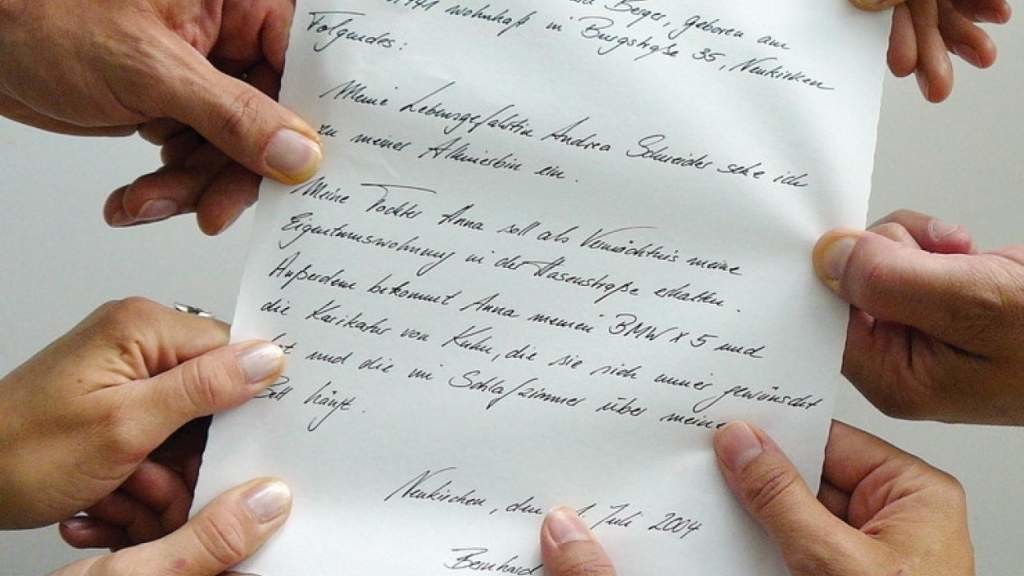 Beyer, geboren am
1941 wohnhaft in Burgstraße 35, Neukirchen
Folgendes:
Meine Lebensgefährtin Andrea Schneider setze ich
zu meiner Alleinerbin ein.
Meine Tochter Anna soll als Vermächtnis meine
Eigentumswohnung in der Hasenstraße erhalten.
Außerdem bekommt Anna meinen BMW X5 und
die Karikatur von Kuhn, die sie sich immer gewünscht
und die im Schlafzimmer über meinem
Bett hängt.
Neukirchen, den 1 Juli 2004
Bernhard